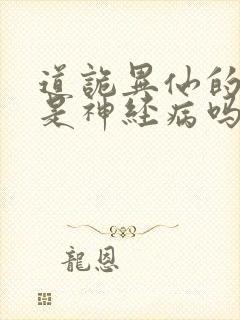 道詭異仙的
是神経病吗
龍恩